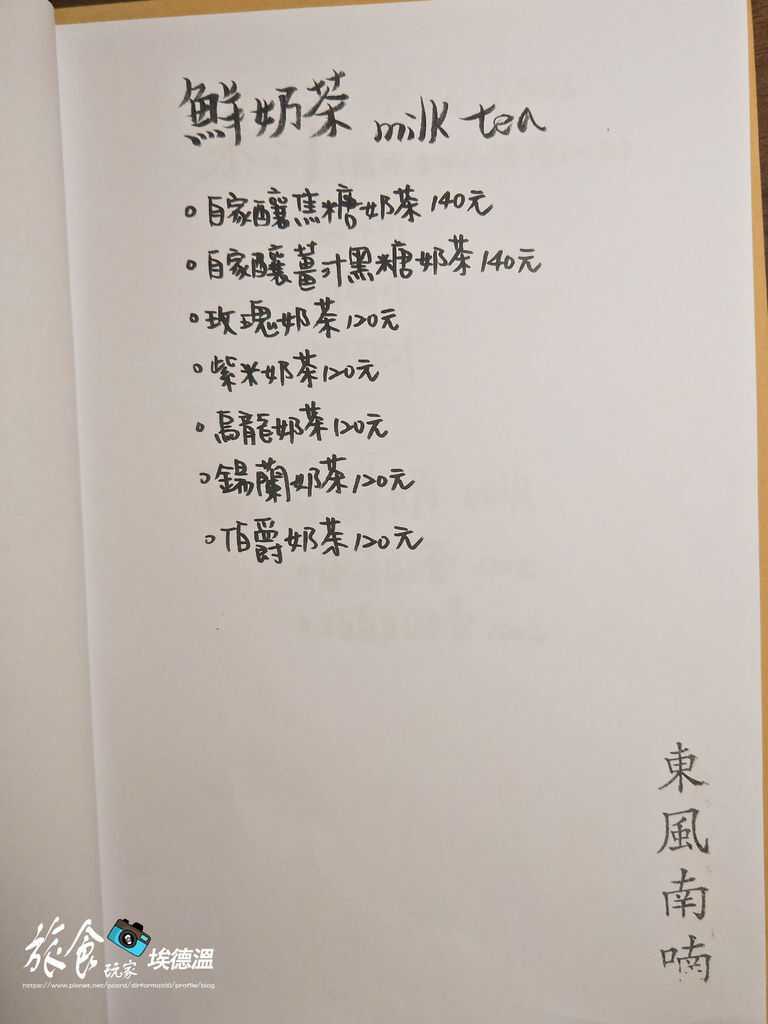 鮮奶茶 milk tea
。自家釀焦糖奶茶 140元
。自家釀薑汁黑糖奶茶 140元
。玫瑰奶茶 120元
。紫米奶茶 120元
。烏龍奶茶 120元
。錫蘭奶茶 120元
。伯爵奶茶 120元
東風南喃
旅食玩家 埃德溫
https://www.pixnet.net/pcard/dirformat00/profile/blog